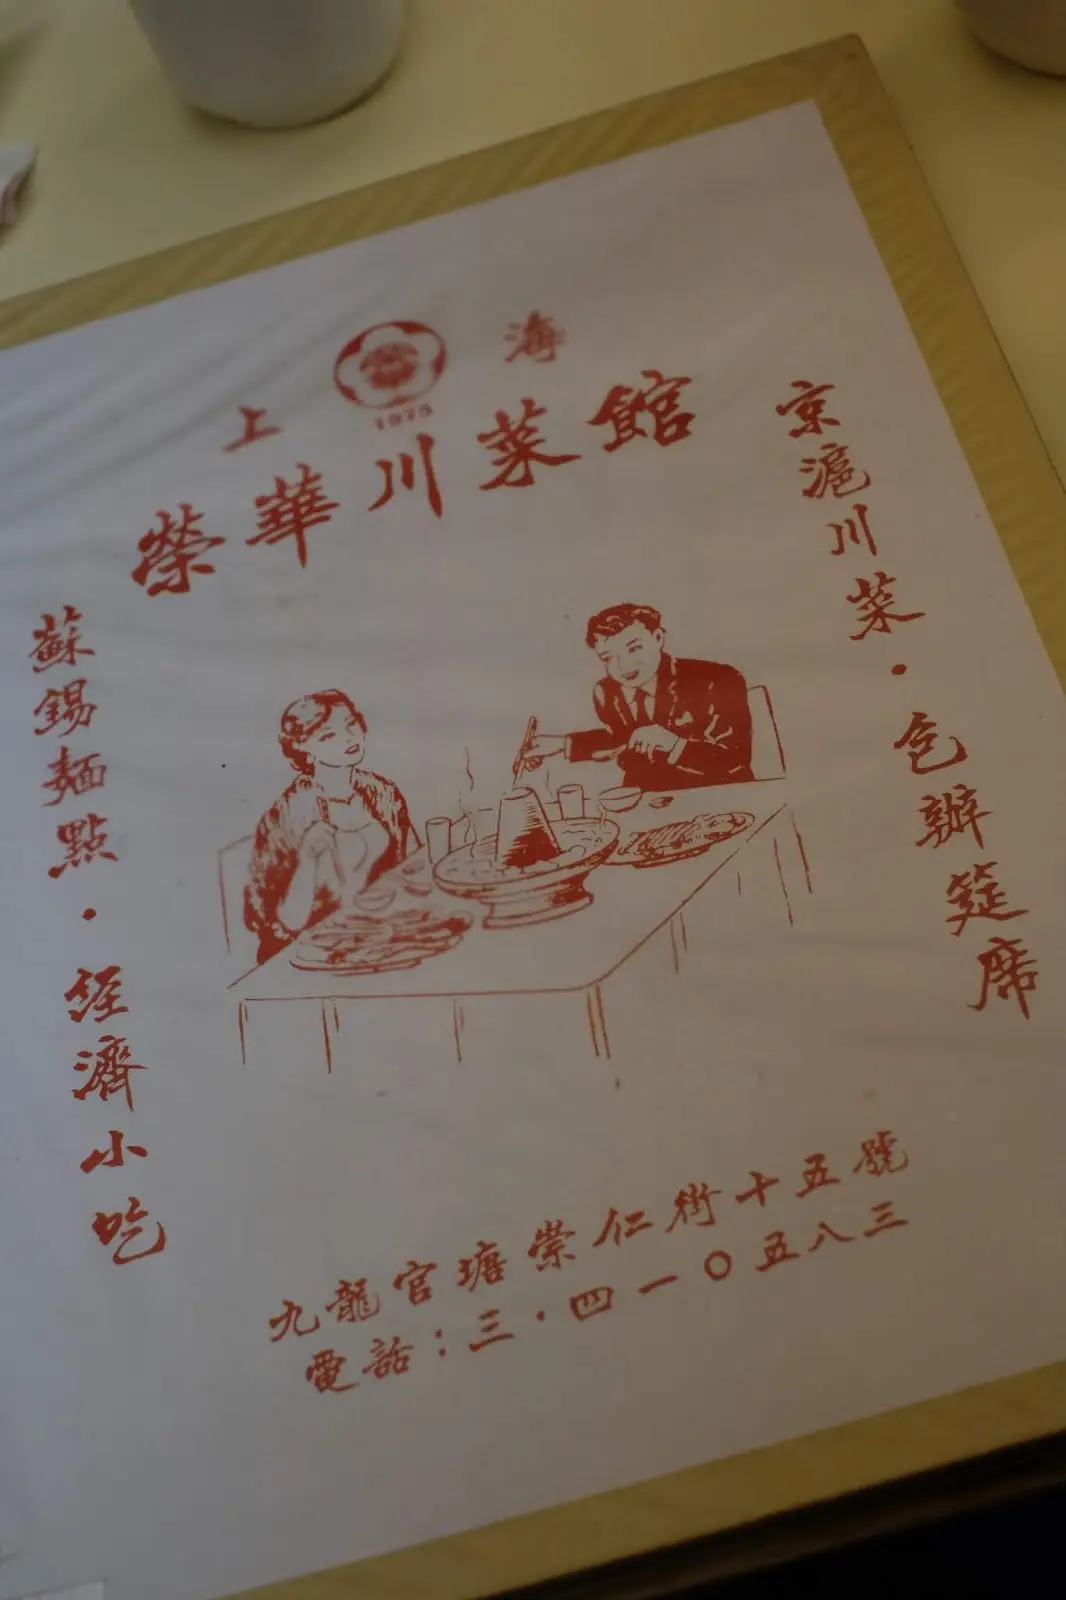 上海
1975
榮華川菜館
京滬川菜・包辦筵席
蘇錫麵點・經濟小吃
九龍官塘崇仁街十五號
電話：三・四一〇五八三